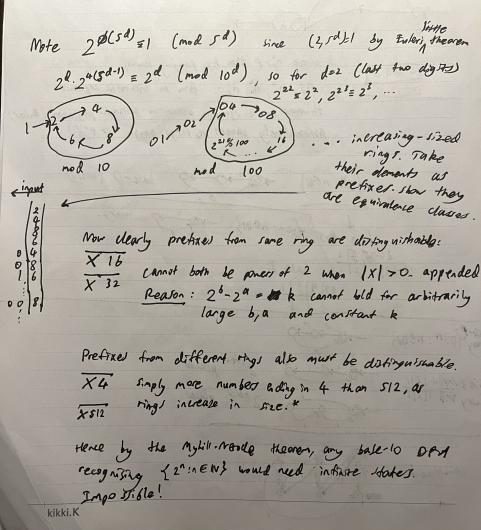 Note 2^φ(5^d) ≡ 1 (mod 5^d) since (2,5^d)=1 by Euler's little theorem
2^d · 2^4(5^d-1) ≡ 2^d (mod 10^d), so for d=2 (last two digits)
2^22 ≡ 2^2, 2^23 ≡ 2^3, ...
1 → 2 → 4 8 6
mod 10
01 → 02 → 04 → 08 16 ... 2^21%100
mod 100
.... increasing-sized
rings. Take
their elements as
prefixes. show they
are equivalence classes.
← input
2
4
8
6
0 4
0 8
1 6
0 0 8
Now clearly prefixes from same ring are distinguishable:
X 16
X 32
cannot both be powers of 2 when |X| > 0. appended
Reason: 2^b - 2^a = k cannot hold for arbitrarily
large b, a and constant k
Prefixes from different rings also must be distinguishable.
X4 simply more numbers ending in 4 than 512, as
X512 rings increase in size.*
Hence by the Myhill-Nerode theorem, any base-10 DFA
recognising {2^n : n ∈ N} would need infinite states.
Impossible!
kikki.K